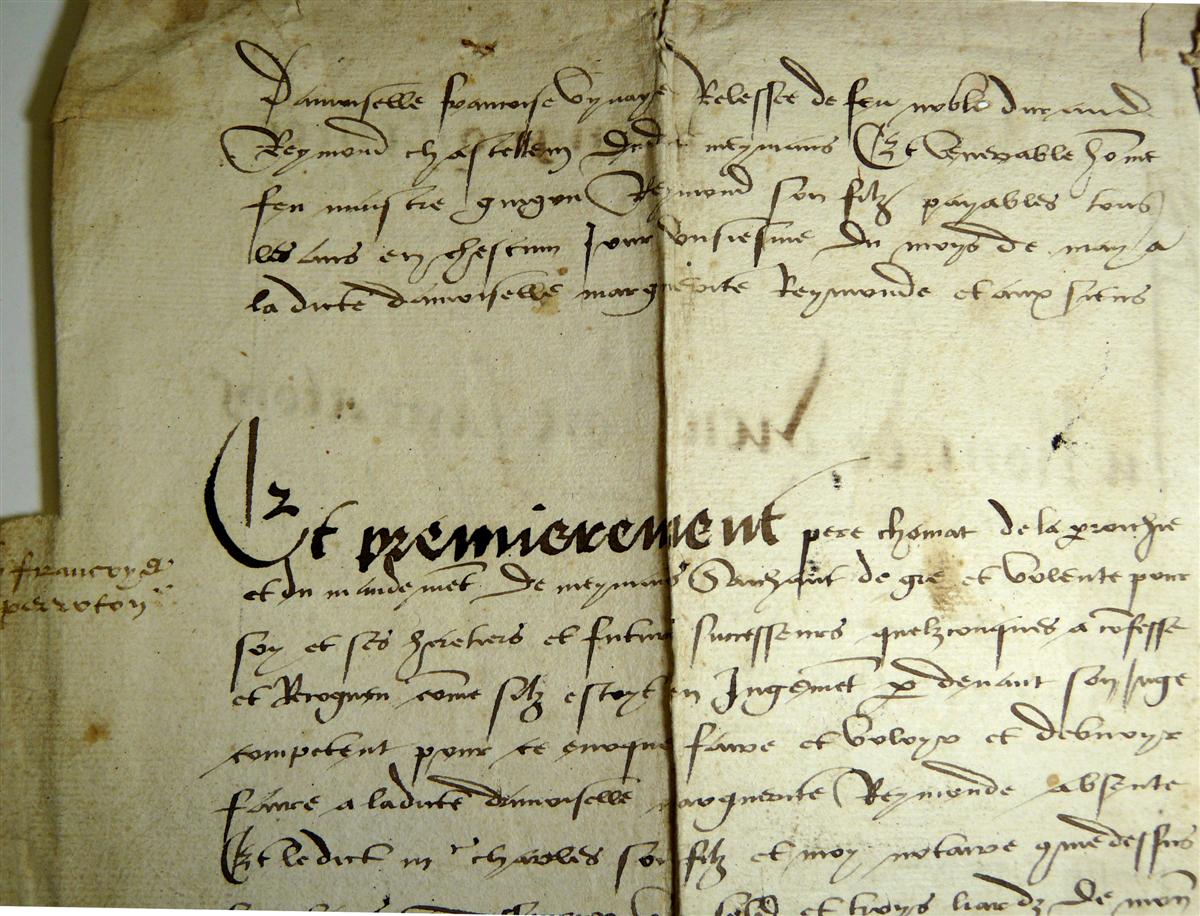 Damoiselle francoise Vynaye Relessee de feu noble durand
Reymond chastellein dudit meymans Et venerable home
feu messire gurgon Reymond son filz payables tous
les ans en chescun Jour unsiesme du moys de may a
la dicte damoiselle marguerite Reymonde et aux siens
Et premierement pere chomat de la parroichie
et du mandemet de meymans Saichant de gre et volente pour
soy et ses heretiers et futurs successeurs quelzconques a cofesse
et Recogneu come silz estoyt en Jugemet par devant son Juge
competent pour ce evoque faire et voloyr et debvoyr
faire a ladicte damoiselle marguerite Reymonde absente
Et ledict mr charles son filz et moy notaire que dessus
sold et troys liardz de mon
francoys
perroton